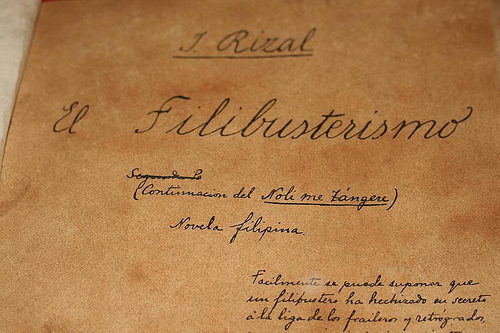 J. Rizal
El Filibusterismo
(Continuacion del Noli me Tángere)
Novela filipina.
Facilmente se puede suponer que
un filibustero ha hechizado en secreto
á la liga de los fraileros y retrógrados